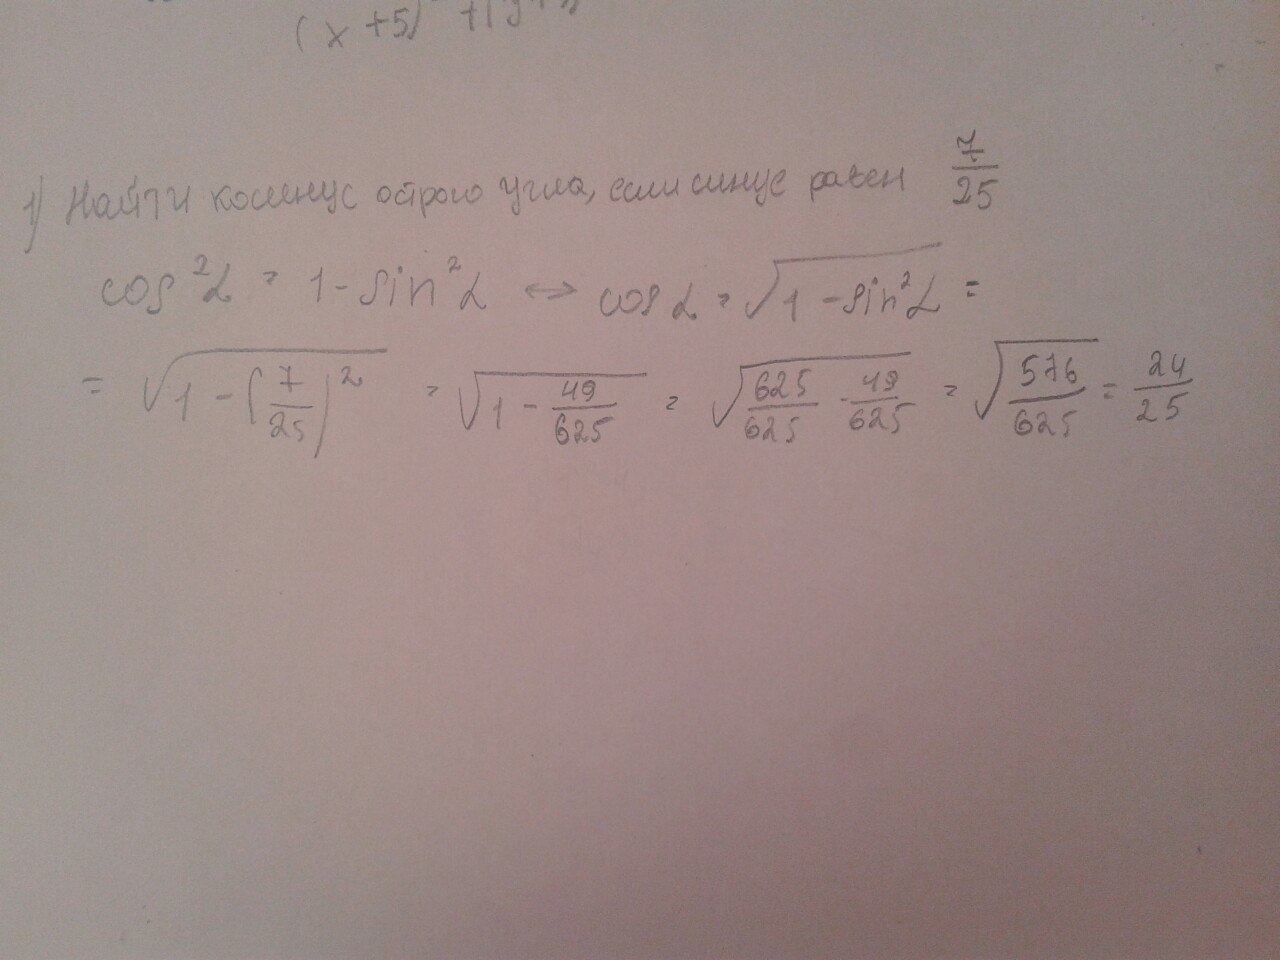 (x+5)
1) Найти косинус острого угла, если синус равен 7/25
cos²α = 1 - sin²α ↔ cos α = √(1 - sin²α) =
= √(1 - (7/25)²) = √(1 - 49/625) = √(625/625 - 49/625) = √(576/625) = 24/25